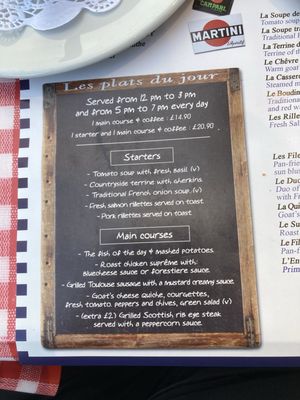 CAMPARI
MARTINI
Les plats du jour
Served from 12 pm to 3 pm
and from 5 pm to 7 pm every day
1 main course + coffee : £14.90
1 starter and 1 main course + coffee : £20.90
Starters
- Tomato soup with fresh basil (v)
- Countryside terrine with gherkins
- Traditional French onion soup (v)
- Fresh salmon rillettes served on toast
- Pork rillettes served on toast
Main courses
- The fish of the day & mashed potatoes
- Roast chicken suprême with:
Bluecheese sauce or forestiere sauce
- Grilled Toulouse sausage with a mustard creamy sauce
- Goat's cheese quiche, courgettes,
fresh tomato, peppers and chives, green salad (v)
- (extra £2) Grilled Scottish rib eye steak
served with a peppercorn sauce
La Soupe de
Tomato soup
La Soupe
Traditional
La Terrine
Terrine of the
Le Chèvre
Warm goat
La Casser
Steamed m
Le Boudin
Traditional
Les Rille
Fresh Sal
Le Filet
Pan-frie
sun blus
Le Duo
Duo of
with Fr
La Qui
Goat's
Le Su
Roast
Le File
Pan-fri
L'En
Prim